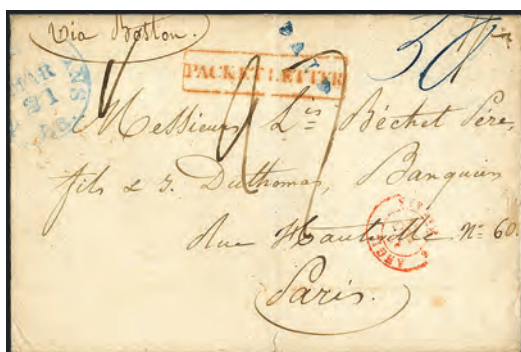 Via Boston.
MAR
21
PAID
PACKET LETTER
Messieurs Ls Béchet Père,
fils & J. Duthomas, Banquiers
Rue Hauteville No 60.
Paris.